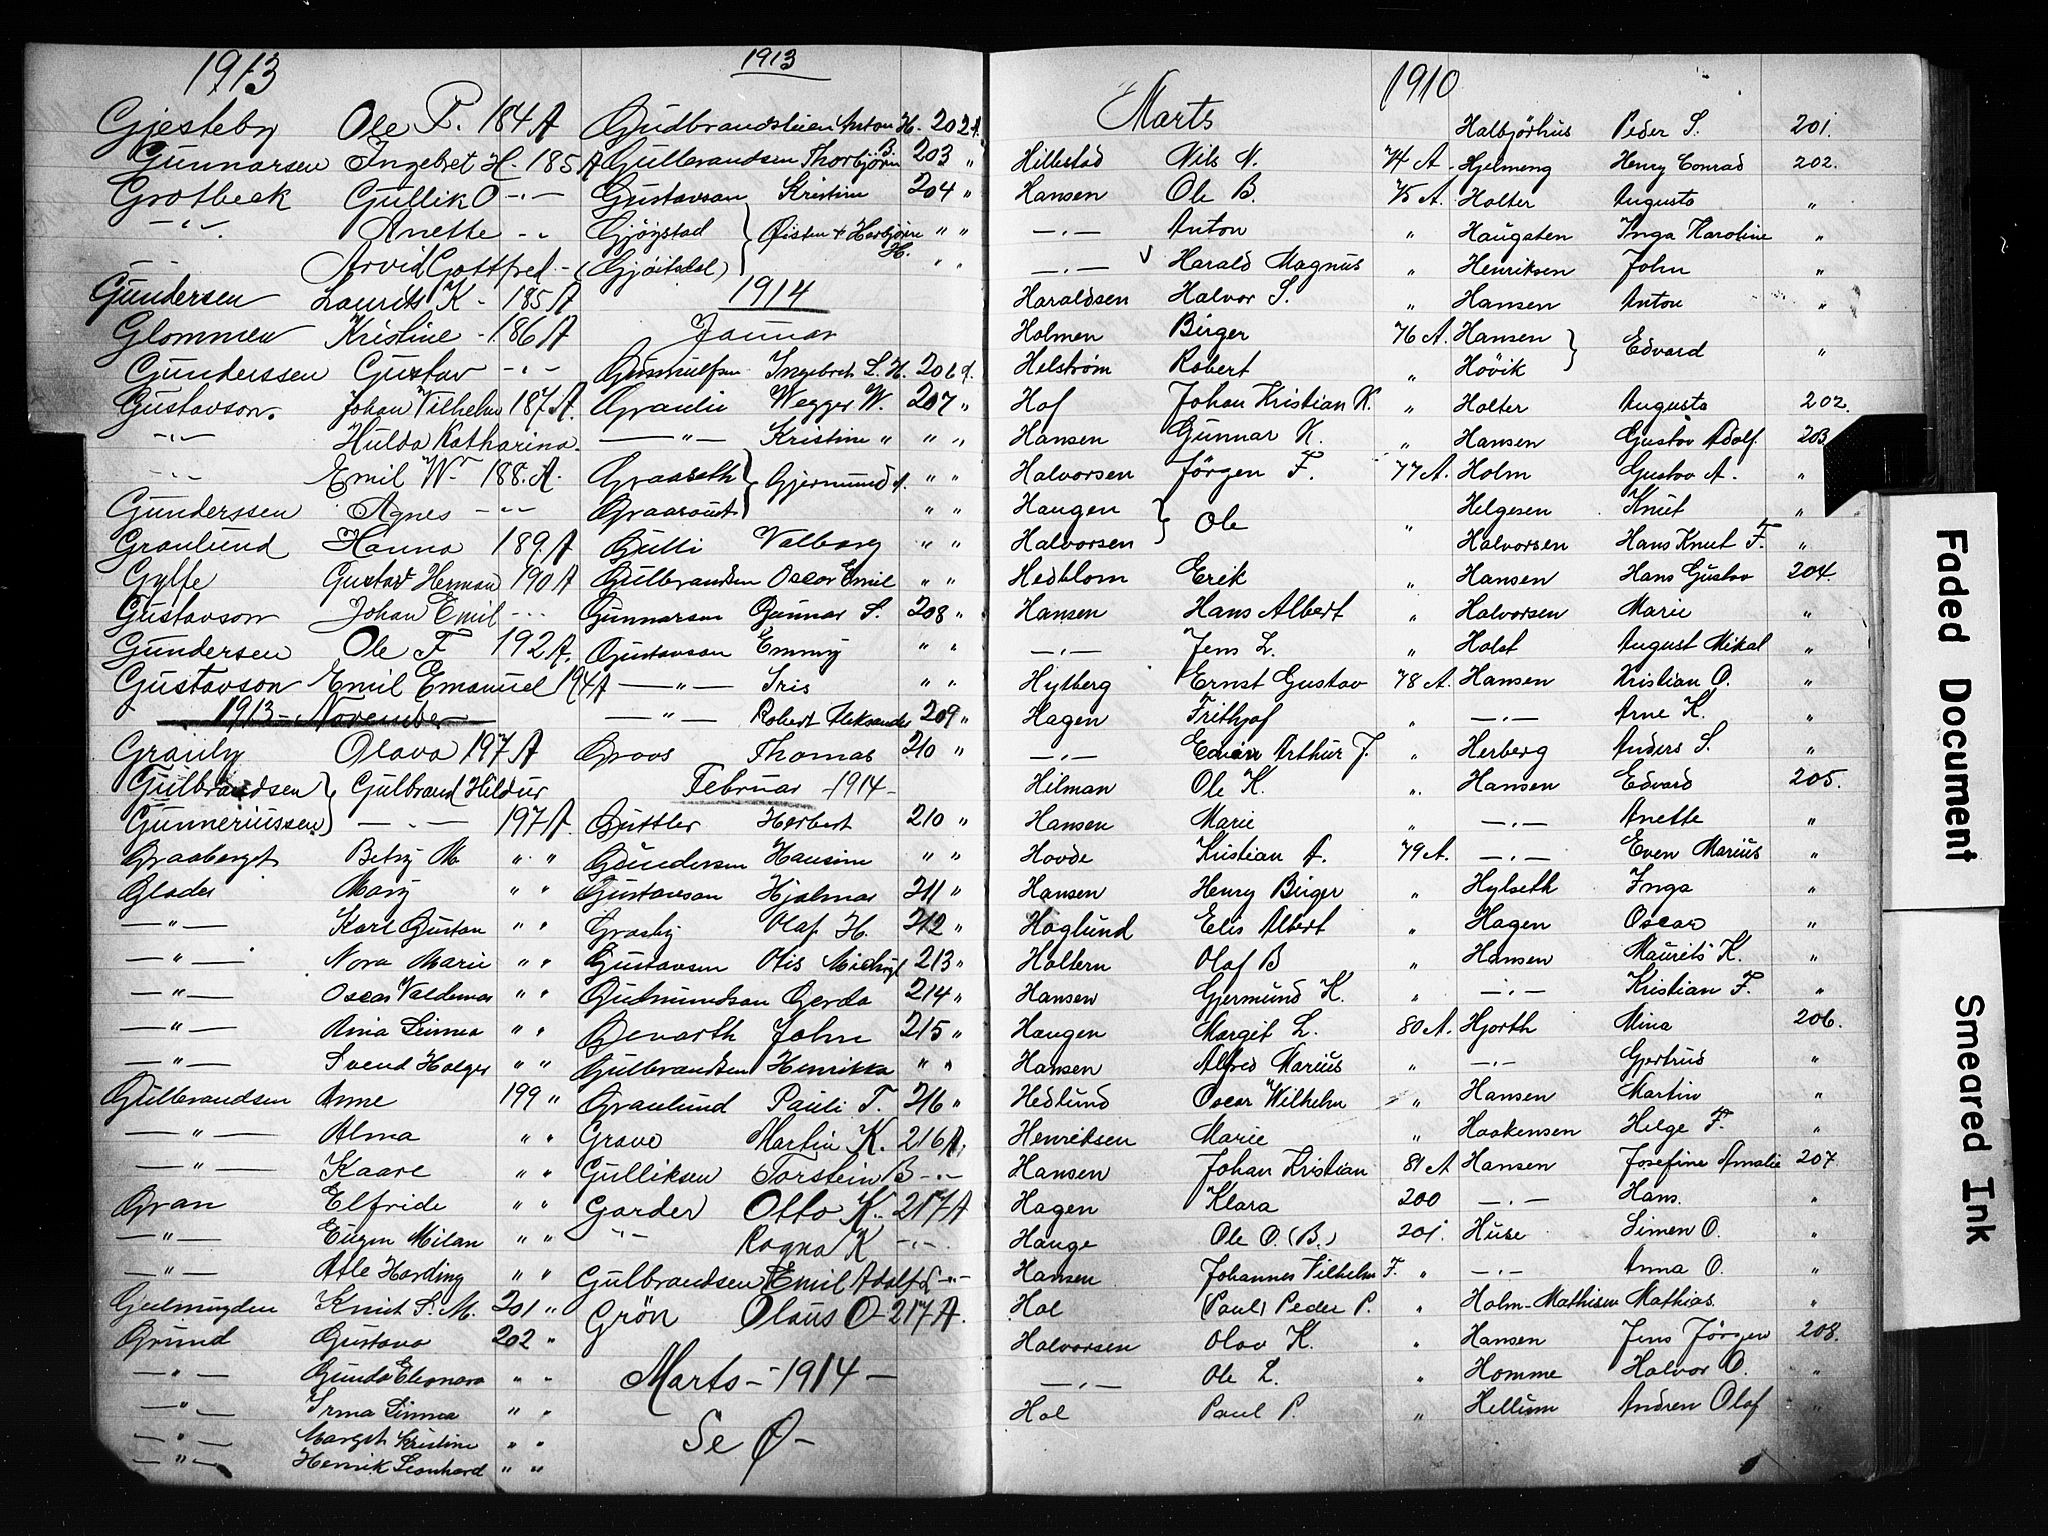 1913
Gjesteby Ole P. 184 A
Gunnarsen Ingebret H. 185 A
Grotbeck Gullik O -"-
-"- Anette -"-
-"- Arvid Gottfred -
Gundersen Laurits K - 185 A
Glommen Kristine - 186 A
Gunderssen Gustav -"-
Gustavson. Johan Vilhelm 187 A.
-"- Hulda Katharina.
-"- Emil W. 188. A.
Gunderssen Agnes -"-
Granlund Hanna 189. A
Gylfe Gustav Herman 190 A
Gustavson Johan Emil -"-
Gundersen Ole F 192 A.
Gustavson Emil Emanuel 194 A
1913 - November
Grauby Olava 197 A
Gulbrandsen } Gulbrand Hildur
Gunneriussen } -"- 197 A.
Graaberget Betsy M " "
Glader Mary " "
-"- Karl Gustav " "
-"- Nora Marie " "
-"- Oscar Valdemar " "
-"- Ania Linnea " "
-"- Svend Holger " "
Gulbrandsen Arne 199 "
-"- Alma " "
-"- Kaare " "
Gran Elfride " "
-"- Eugen Milan " "
-"- Atle Harding " "
Gulmuyden Knut S. M. 201 "
Grund Gustava 202 "
-"- Gunda Eleonora " "
-"- Irma Linnea " "
-"- Margit Kristine " "
-"- Henrik Leonhard " "
1913
Gudbrandsleien Anton H. 202 A.
Gulbrandsen Thorbjørn B. 203 "
Gustavson Kristine 204 "
Gjøystad } Øisten & Harbjørn " "
(Gjøitdal) } H. " "
1914
Januar
Gunnulfsen Ingebret S. H. 206 A.
Graulie Wegger W. 207 "
-"- Kristine " " "
Graaseth } Gjermund A. " "
Graarout } " "
Gulli Valborg " "
Gulbrandsen Oscar Emil " "
Gunnarsen Gunnar S. 208 "
Gustavson Emmy " "
-"- Iris " "
-"- Robert Aleksander 209 "
Groos Thomas 210 "
Februar 1914 -
Guttler Herbert 210 "
Gundersen Hansine " "
Gustavson Hjalmar 211 "
Grasby Olaf H. 212 "
Gustavsen Otis Midhryl 213 "
Gudmundson Gerda 214 "
Gevarth John 215 "
Gulbrandsen Henrikka " "
Granlund Pauli T. 216 "
Grave Martin K. 216 A.
Gulliksen Torstein B -"-
Garder Otto K. 217 A
-"- Ragna K -"-
Gulbrandsen Emil Adolf L -"-
Grön Olaus O - 217 A.
Marts - 1914 -
Se Ø -
Marts 1910
Hillestad Nils N. 74 A.
Hansen Ole B. 75 A.
-"- Anton "
-"- Harald Magnus "
Haraldsen Halvor S. "
Holmen Birger 76 A.
Helström Robert "
Hof Johan Kristian K. "
Hansen Gunnar K. "
Halvorsen Jörgen F. 77 A.
Haugen } Ole "
Halvorsen }
Hedblom Erik "
Hansen Hans Albert "
-"- Jens L. "
Hytberg Ernst Gustav 78 A.
Hagen Frithjof "
-"- Edvin Arthur J. "
Hilman Ole K. "
Hansen Marie "
Hovde Kristian A. 79 A.
Hansen Henry Birger "
Höglund Elis Albert "
Haltern Olaf B "
Hansen Gjermund K. "
Haugen Margit L. 80 A.
Hansen Alfred Marius "
Hedlund Oscar Wilhelm "
Henriksen Marie "
Hansen Johan Kristian 81 A
Hagen Klara 200
Hauge Ole O. (B.) 201.
Hansen Johannes Vilhelm F. "
Hol (Paul) Peder P. "
Halvorsen Olav K. "
-"- Ole L. "
Hol Paul P. "
Halbjörhus Peder S. 201.
Hjelmeng Henry Conrad 202.
Holter Augusta "
Haugsten Inga Karoline "
Henriksen John "
Hansen Anton "
Hansen } Edvard "
Hövik }
Holter Augusta 202.
Hansen Gustav Adolf 203
Holm Gustav A. "
Helgesen Knut "
Halvorsen Hans Knut F. "
Hansen Hans Gustav 204.
Halvorsen Marie "
Holst August Mikal "
Hansen Kristian O. "
-"- Arne K. "
Herberg Anders S. "
Hansen Edvard 205.
-"- Anette "
-"- Even Marius "
Hylseth Inga "
Hagen Oscar "
Hansen Maurits K. "
-"- Kristian F. "
Hjorth Mina 206.
-"- Gjertrud "
Hansen Martin "
Haakensen Helge F. "
Hansen Josefine Amalie 207.
-"- Hans. "
Huse Simen O. "
-"- Anna O. "
Holm-Mathisen Mathias. "
Hansen Jens Jörgen 208.
Homme Halvor O. "
Hellum Andren Olaf "
Faded Document
Smeared Ink